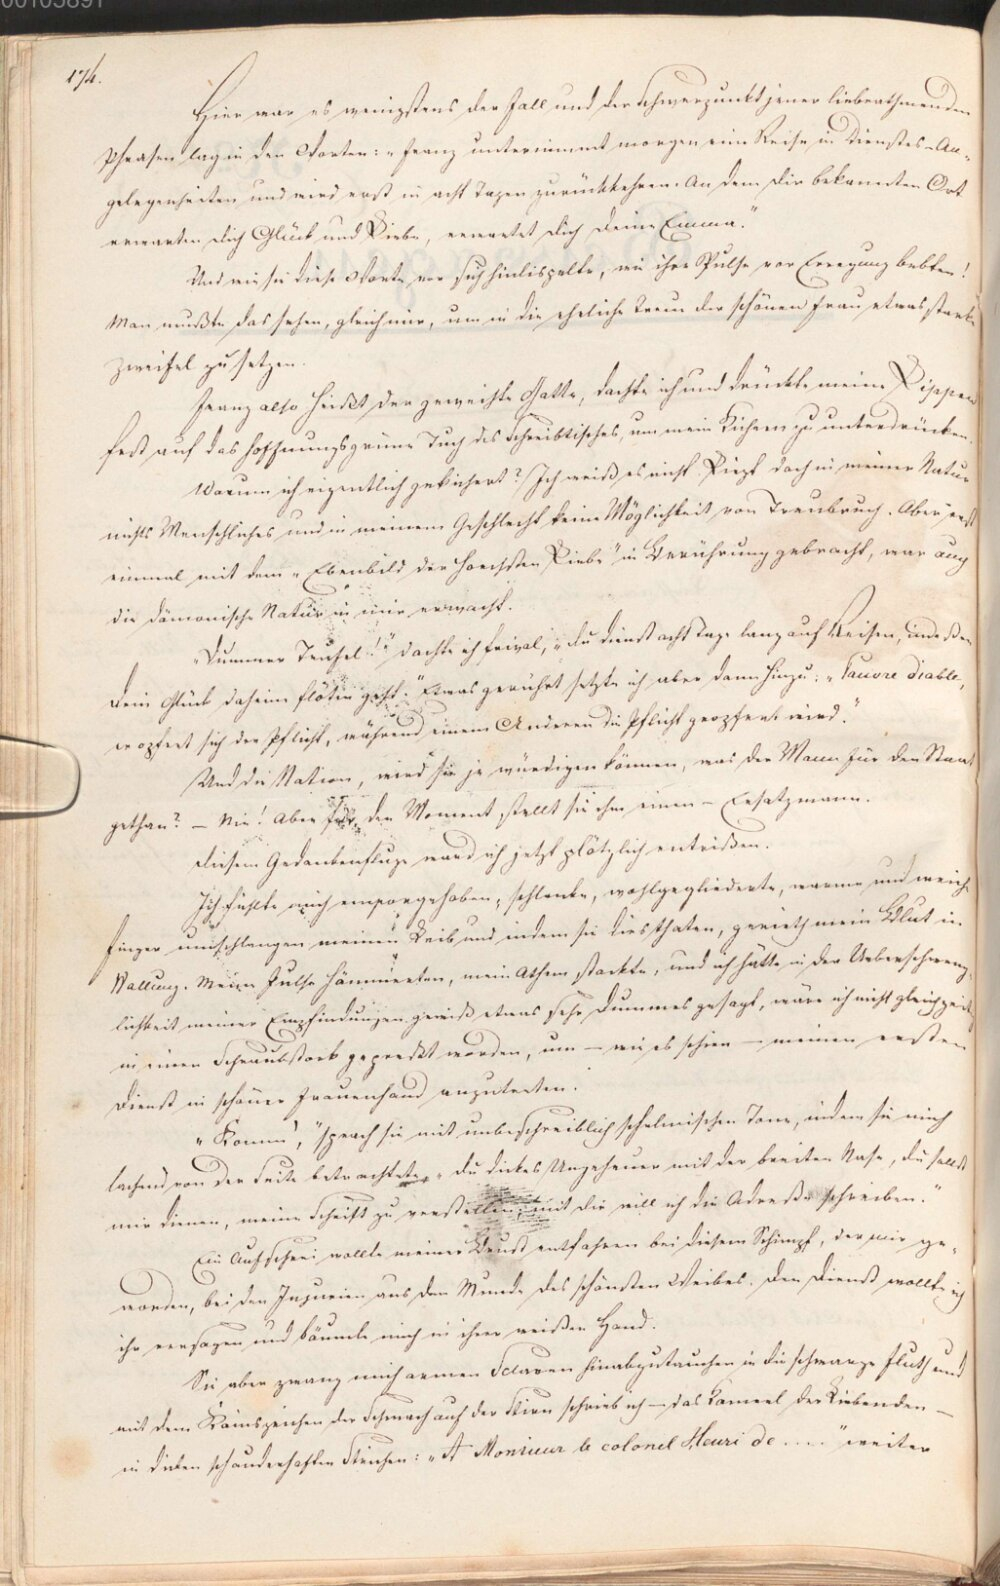 00105891
174.
Hier war es wenigstens der Fall und der Schwerpunkt jener liebeathmenden
Phrasen lag in den Worten: „Franz unternimmt morgen eine Reise in Dienstes-An-
gelegenheiten und wird erst in acht Tagen zurückkehren. An dem Dir bekannten Ort
erwarten Dich Glück und Liebe, erwartet Dich Deine Emma."
Und wie sie diese Worte vor sich hinlispelte, wie ihre Pulse vor Erregung bebten!
Man mußte das sehen, gleich mir, um in die eheliche Treue der schönen Frau etwas starke
Zweifel zu setzen.
Franz also heißt der geweihte Gatte, dachte ich und drückte meine Rippen
fest auf das hoffnungsgrüne Tuch des Schreibtisches, um mein Kichern zu unterdrücken.
Warum ich eigentlich gekichert? Ich weiß es nicht. Liegt doch in meiner Natur
nichts Menschliches und in meinem Geschlecht keine Möglichkeit von Treubruch. Aber erst
einmal mit dem „Ebenbild der hoechsten Liebe" in Berührung gebracht, war auch
die dämonische Natur in mir erwacht.
„Dummer Teufel!" dachte ich frivol, „du dienst acht Tage lang auf Reisen, indeßen
Dein Glück daheim flöten geht." Etwas gerührt setzte ich aber dann hinzu: „Pauvre diable,
er opfert sich der Pflicht, während einem Anderen die Pflicht geopfert wird."
Und die Nation, wird sie je würdigen können, was der Mann für den Staat
gethan? – Nie! Aber für den Moment stellt sie ihm einen – Ersatzmann.
Diesem Gedankenfluge ward ich jetzt plötzlich entrißen.
Ich fühlte mich emporgehoben, schlanke, wohlgegliederte, warme und weiche
Finger umschlangen meinen Leib und indem sie dies thaten, gerieth mein Blut in
Wallung. Meine Pulse hämmerten, mein Athem stockte, und ich hätte in der Ueberschweng-
lichkeit meiner Empfindungen gewiß etwas sehr Dummes gesagt, wäre ich nicht gleichzeitig
in einen Schraubstock gepreßt worden, um – wie es schien – meinen ersten
Dienst in schöner Frauenhand anzutreten.
„Komm'," sprach sie mit unbeschreiblich schelmischem Tone, indem sie mich
lachend von der Seite betrachtete, „du dickes Ungeheuer mit der breiten Nase, du sollst
mir dienen, meine Schrift zu verstellen; mit dir will ich die Adreße schreiben."
Ein Aufschrei wollte meiner Brust entfahren bei diesem Schimpf, der mir ge-
worden, bei den Injurien aus dem Munde des schönsten Weibes. Den Dienst wollte ich
ihr versagen und bäumte mich in ihrer weißen Hand.
Sie aber zwang mich armen Sclaven hinabzutauchen in die schwarze Fluth und
mit dem Kainszeichen der Schmach auf der Stirn schrieb ich – das Kameel der Liebenden –
in dicken schauderhaften Strichen: „A Monsieur le colonel Henri de ...." weiter